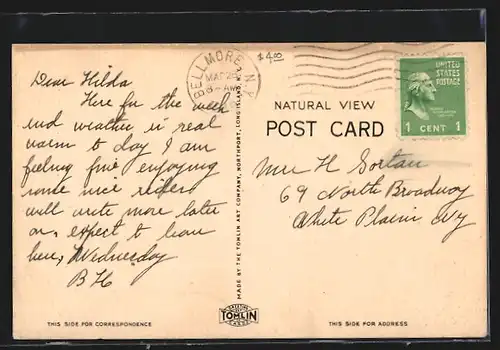 $4.00
BELLMORE, N.Y.
MAR 28
8-AM
UNITED
STATES
POSTAGE
1 CENT 1
NATURAL VIEW
POST CARD
Dear Hilda
Here for the week
end weather is real
warm to day I am
feeling fine enjoying
some nice rides
will write more later
on, expect to leave
here, Wednesday
B H
MADE BY THE TOMLIN ART COMPANY, NORTHPORT, LONG ISLAND, N.Y.
Mrs H Sortau
69 North Broadway
White Plains NY
TOMLIN
THIS SIDE FOR CORRESPONDENCE
THIS SIDE FOR ADDRESS